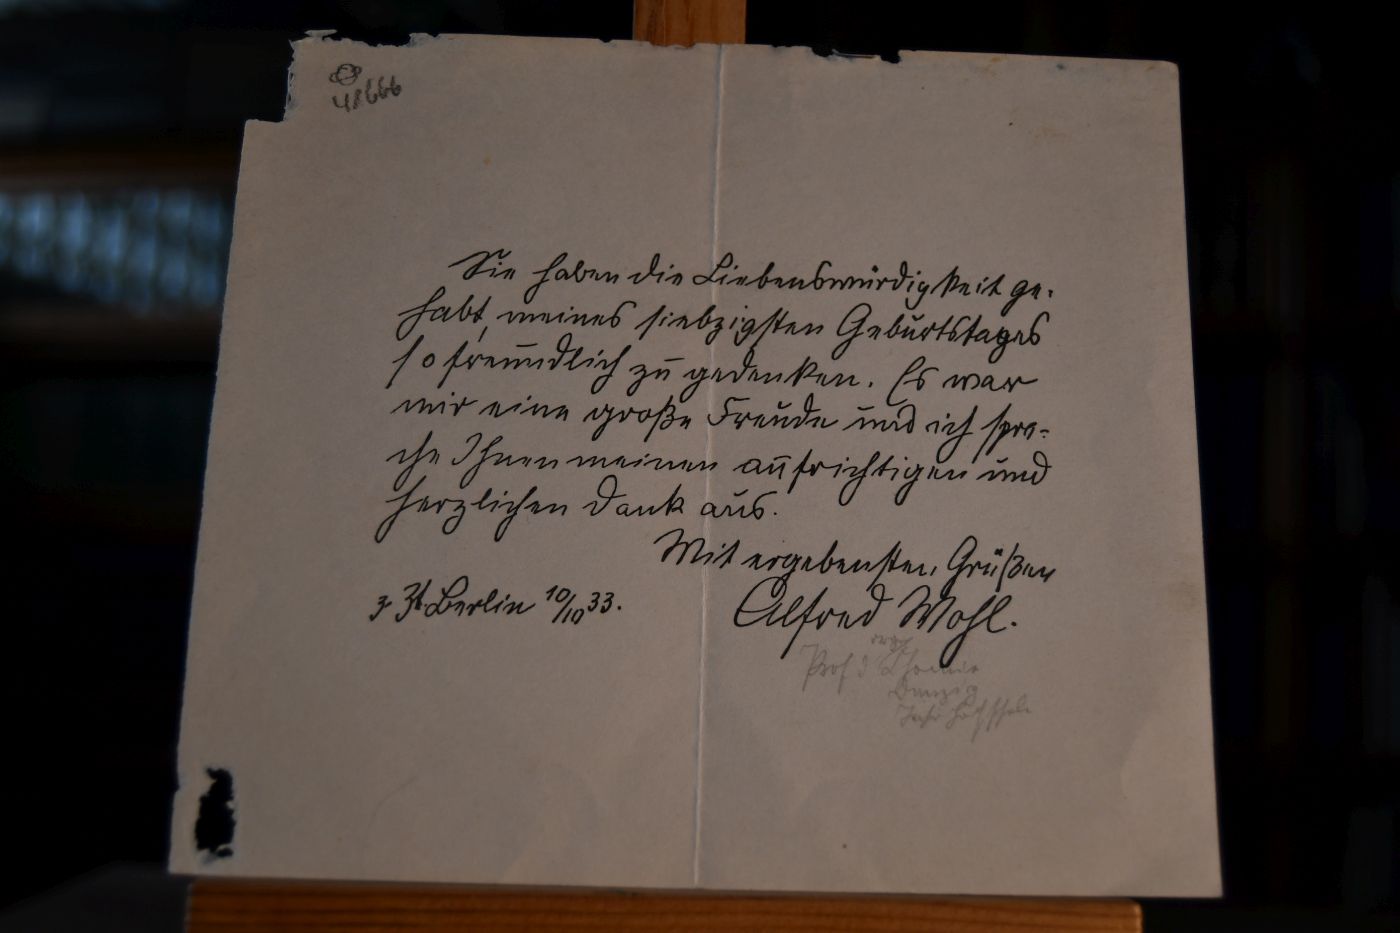 41666
Sie haben die Liebenswürdigkeit ge-
habt, meines siebzigsten Geburtstages
so freundlich zu gedenken. Es war
mir eine große Freude und ich spre-
che Ihnen meinen aufrichtigen und
herzlichen Dank aus.
Mit ergebensten Grüßen
z. Zt. Berlin 10/10 33.
Alfred Wohl.
org
Prof d Chemie
Danzig
Techn Hochschule